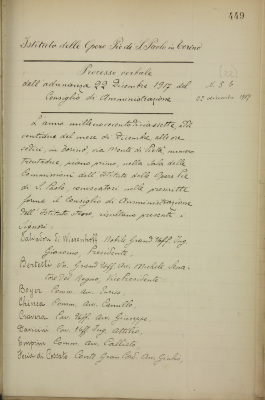 449
Istituto delle Opere Pie di S. Paolo in Torino
Processo verbale
dell'adunanza 22 Dicembre 1917 del
Consiglio di Amministrazione
N. 56
22 dicembre 1917
L'anno millenovecentodiciassette, addì
ventidue del mese di Dicembre alle ore
sedici, in Torino via Monte di Pietà, numero
trentadue, piano primo, nella sala delle
Commissioni dell'Istituto delle Opere Pie
di S. Paolo, convocatosi nelle prescritte
forme il Consiglio di Amministrazione
dell'Istituto stesso, risultano presenti i
Signori:
Giacomo, Presidente.
Bertetti Av. Grand'Uff. Av. Michele Sena-
tore del Regno, Vicepresidente
Beyer Comm. Av. Enrico
Chiaves Comm. Av. Camillo
Cravero Cav. Uff. Av. Giuseppe
Cav. Uff. Ing. Attilio
Comm. Av. Callisto
Conte Grand'Cord. Av. Giulio